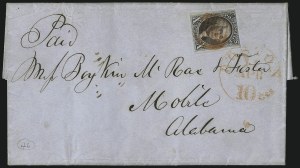 Paid
Mess Boykin Mc Rae & Foster
Mobile
Alabama
10